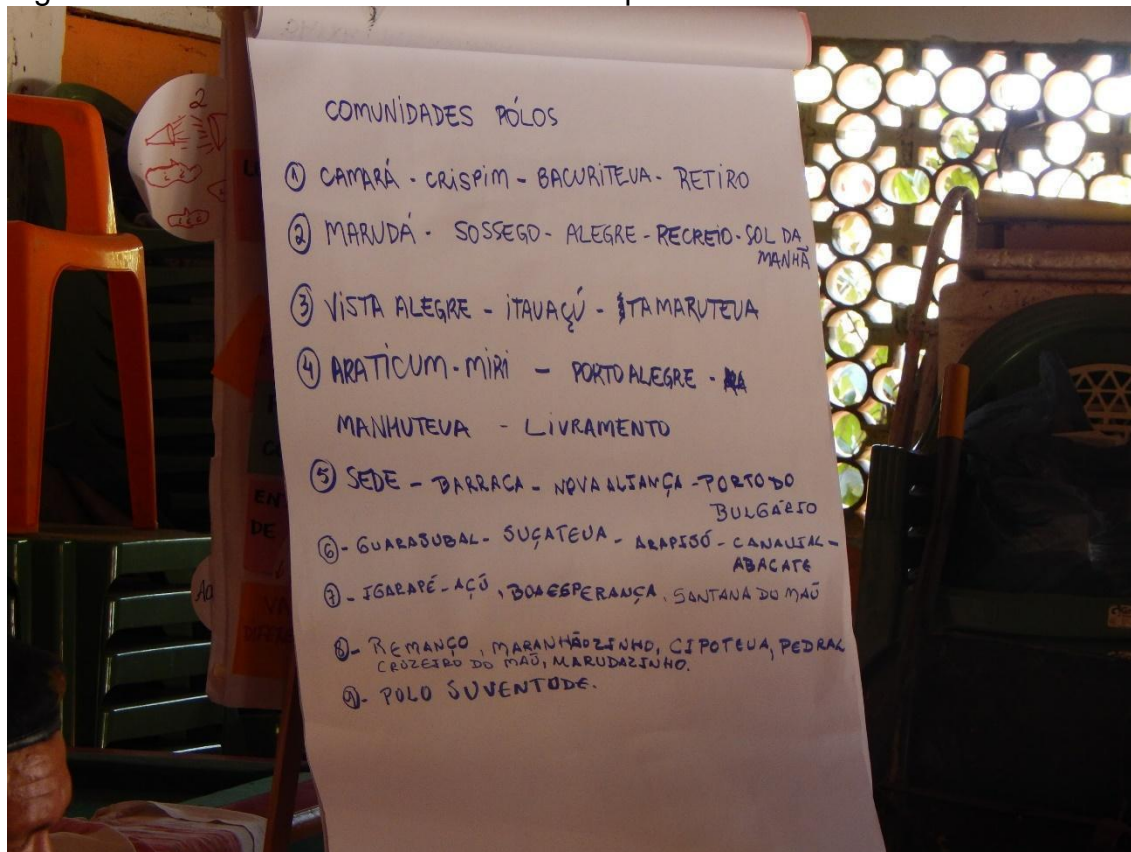 COMUNIDADES PÓLOS
① CAMARÁ - CRISPIM - BACURITEUA - RETIRO
② MARUDÁ - SOSSEGO - ALEGRE - RECREIO - SOL DA
MANHÃ
③ VISTA ALEGRE - ITAUAÇÚ - ITAMARUTEUA
④ ARATICUM-MIRI - PORTO ALEGRE -
MANHUTEUA - LIVRAMENTO
⑤ SEDE - BARRACA - NOVA ALIANÇA - PORTO DO
BULGÁRIO
⑥ - GUARAJUBAL - SUÇATEUA - ARAPIJÓ - CANAUIAL -
ABACATE
⑦ - IGARAPÉ-AÇÚ, BOA ESPERANÇA, SANTANA DO MAÚ
⑧ - REMANÇO, MARANHÃOZINHO, CIPOTEUA, PEDRAL
CRUZEIRO DO MAÚ, MARUDAZINHO.
⑨ - POLO JUVENTUDE.
2
EN
DE